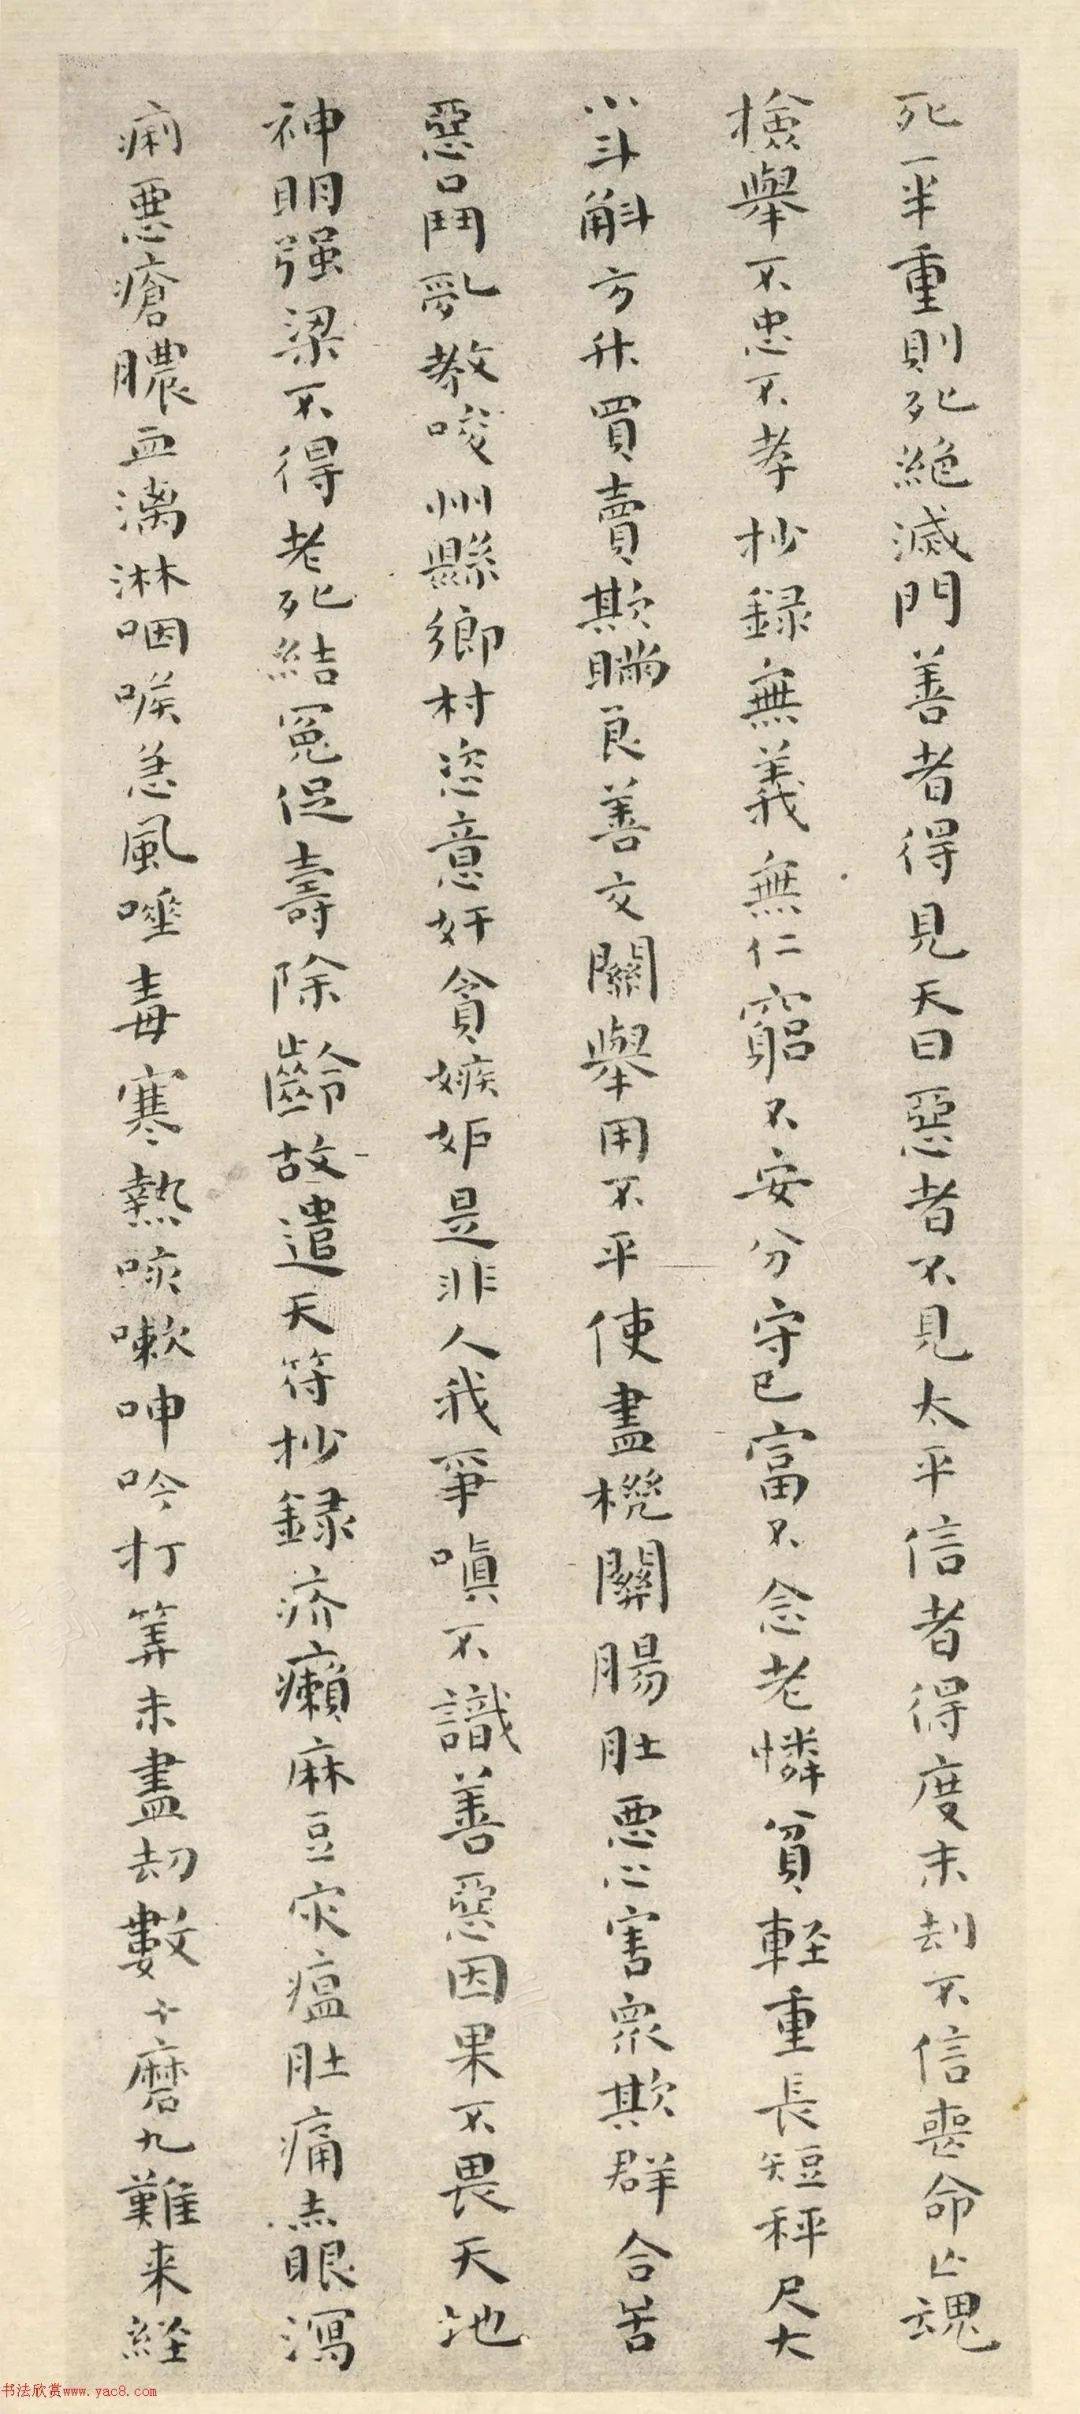 死一半重則死絕滅門善者得見天日惡者不見太平信者得度末刼不信喪命亡魂
撿舉不忠不孝抄錄無義無仁窮不安分守己富不念老憐貧輕重長短秤尺大
小斗斛方升買賣欺瞞良善交關舉用不平使盡機關腸肚惡心害衆欺群合苦
惡口鬥亂教唆州縣鄉村恣意奸貪嫉妒是非人我爭嗔不識善惡因果不畏天地
神明强梁不得老死結冤促壽除齡故遣天符抄錄疥癩麻豆灾瘟肚痛赤眼瀉
痢惡瘡膿血漓淋咽喉急風唑毒寒熱咳嗽呻吟打筭未盡刼數十磨九難来経
书法欣赏www.yac8.com